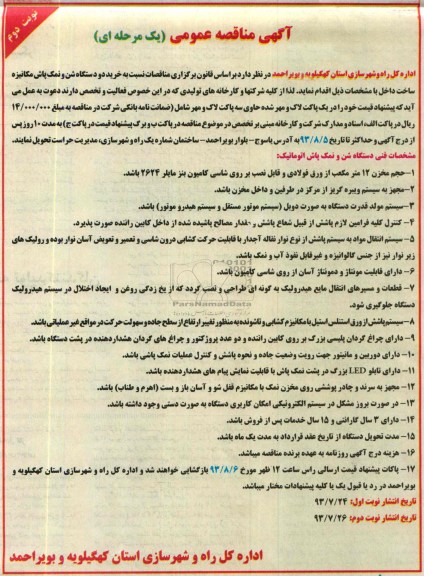 نوبت دوم
آگهی مناقصه عمومی (یک مرحله ای)
اداره کل راه و شهرسازی استان کهگیلویه و بویراحمد در نظر دارد بر اساس قانون برگزاری مناقصات نسبت به خرید دو دستگاه شن و نمک پاش مکانیزه
ساخت داخل با مشخصات ذیل اقدام نماید. لذا از کلیه شرکتها و کارخانه های تولیدی که در این خصوص فعالیت و تخصص دارند دعوت به عمل می
آید که پیشنهاد قیمت خود را در یک پاکت لاک و مهر شده حاوی سه پاکت لاک و مهر شامل (ضمانت نامه بانکی شرکت در مناقصه به مبلغ ۱۴/۰۰۰/۰۰۰
ریال در پاکت الف، اسناد و مدارک شرکت و کارخانه مبنی بر تخصص در موضوع مناقصه در پاکت ب و برگ پیشنهاد قیمت در پاکت ج) به مدت ۱۰ روز پس
از درج آگهی و حداکثر تا تاریخ ۹۳/۸/۵ به آدرس یاسوج- بلوار بویراحمد- ساختمان شماره یک راه و شهرسازی، مدیریت حراست تحویل نمایند.
مشخصات فنی دستگاه شن و نمک پاش اتوماتیک:
۱- حجم مخزن ۱۲ متر مکعب از ورق فولادی و قابل نصب بر روی شاسی کامیون بنز مایلر ۲۶۲۴ باشد.
۲- مجهز به سیستم ویبره گریز از مرکز در طرفین و داخل مخزن باشد.
۳- سیستم مولد قدرت دستگاه به صورت دوبل (سیستم موتور مستقل و سیستم هیدرو موتور) باشد.
۴- کنترل کلیه فرامین لازم پاشش از قبیل شعاع پاشش و مقدار مصالح پاشیده شده از داخل کابین راننده صورت پذیرد.
۵- سیستم انتقال مواد به سیستم پاشش از نوع نوار نقاله آجدار با قابلیت حرکت کشابی درون شاسی و تعمیر و تعویض آسان نوار بوده و رولیک های
زیر نوار نیز از جنس گالوانیزه و غیرقابل نفوذ آب و نمک باشد.
۶- دارای قابلیت مونتاژ و دمونتاژ آسان از روی شاسی کامیون باشد.
۷- قطعات و مسیرهای انتقال مایع هیدرولیک به گونه ای طراحی و نصب گردد که از یخ زدگی روغن و ایجاد اختلال در سیستم هیدرولیک
دستگاه جلوگیری شود.
۸- سیستم پاشش از ورق استنلس استیل با مکانیزم کشابی و تاشونده به منظور تغییر ارتفاع از سطح جاده و سهولت حرکت در مواقع غیر عملیاتی باشد.
۹- دارای چراغ گردان پلیسی بزرگ بر روی کابین راننده و دو عدد پروژکتور و چراغ های گردان هشداردهنده در پشت دستگاه باشد.
۱۰- دارای دوربین و مانیتور جهت رویت وضعیت جاده و نحوه پاشش و کنترل عملیات نمک پاشی باشد.
۱۱- دارای تابلو LED بزرگ در پشت نمک پاش با قابلیت نمایش پیام های هشداردهنده باشد.
۱۲- مجهز به سرند و چادر پوششی روی مخزن نمک با مکانیزم قفل شو و آسان باز و بست (اهرم و طناب) باشد.
۱۳- در صورت بروز مشکل در سیستم الکترونیکی امکان کاربری دستگاه به صورت دستی وجود داشته باشد.
۱۴- دارای ۳ سال گارانتی و ۱۵ سال خدمات پس از فروش باشد.
۱۵- مدت تحویل دستگاه از تاریخ عقد قرارداد به مدت یک ماه باشد.
۱۶- هزینه درج آگهی روزنامه به عهده برنده مناقصه میباشد.
۱۷- پاکات پیشنهاد قیمت ارسالی راس ساعت ۱۲ ظهر مورخ ۹۳/۸/۶ بازگشایی خواهند شد و اداره کل راه و شهرسازی استان کهگیلویه و
بویراحمد در رد یا قبول یک یا کلیه پیشنهادات مختار میباشد.
تاریخ انتشار نوبت اول: ۹۳/۷/۲۴
تاریخ انتشار نوبت دوم: ۹۳/۷/۲۶
اداره کل راه و شهرسازی استان کهگیلویه و بویراحمد
ParsNamadData